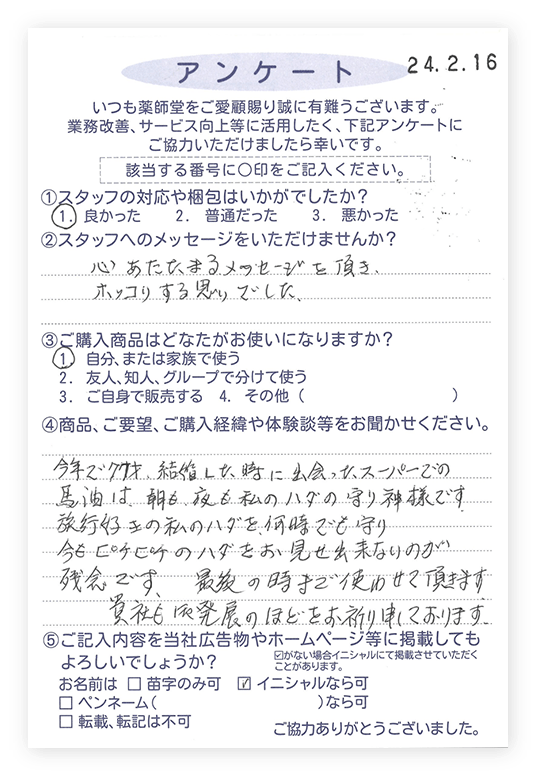 アンケート
24.2.16
いつも薬師堂をご愛顧賜り誠に有難うございます。
業務改善、サービス向上等に活用したく、下記アンケートに
ご協力いただけましたら幸いです。
該当する番号に○印をご記入ください。
①スタッフの対応や梱包はいかがでしたか?
1. 良かった 2. 普通だった 3. 悪かった
②スタッフへのメッセージをいただけませんか?
心あたたまるメッセージを頂き、
ホッコリする思いでした、
③ご購入商品はどなたがお使いになりますか?
1 自分、または家族で使う
2. 友人、知人、グループで分けて使う
3. ご自身で販売する 4. その他( )
④商品、ご要望、ご購入経緯や体験談等をお聞かせください。
今年で 結婚した時に出会ったスーパーでの
馬油は、朝も夜も私のハダの守り神様です
旅行好きの私のハダを何時でも守り
今もピチピチのハダをお見せ出来ないのが
残念です、 最後の時まで使わせて頂きます
貴社も 発展のほどをお祈り申しております、
⑤ご記入内容を当社広告物やホームページ等に掲載しても
よろしいでしょうか?
☑がない場合イニシャルにて掲載させていただく
ことがあります。
お名前は □ 苗字のみ可 ☑ イニシャルなら可
□ ペンネーム( )なら可
□ 転載、転記は不可
ご協力ありがとうございました。